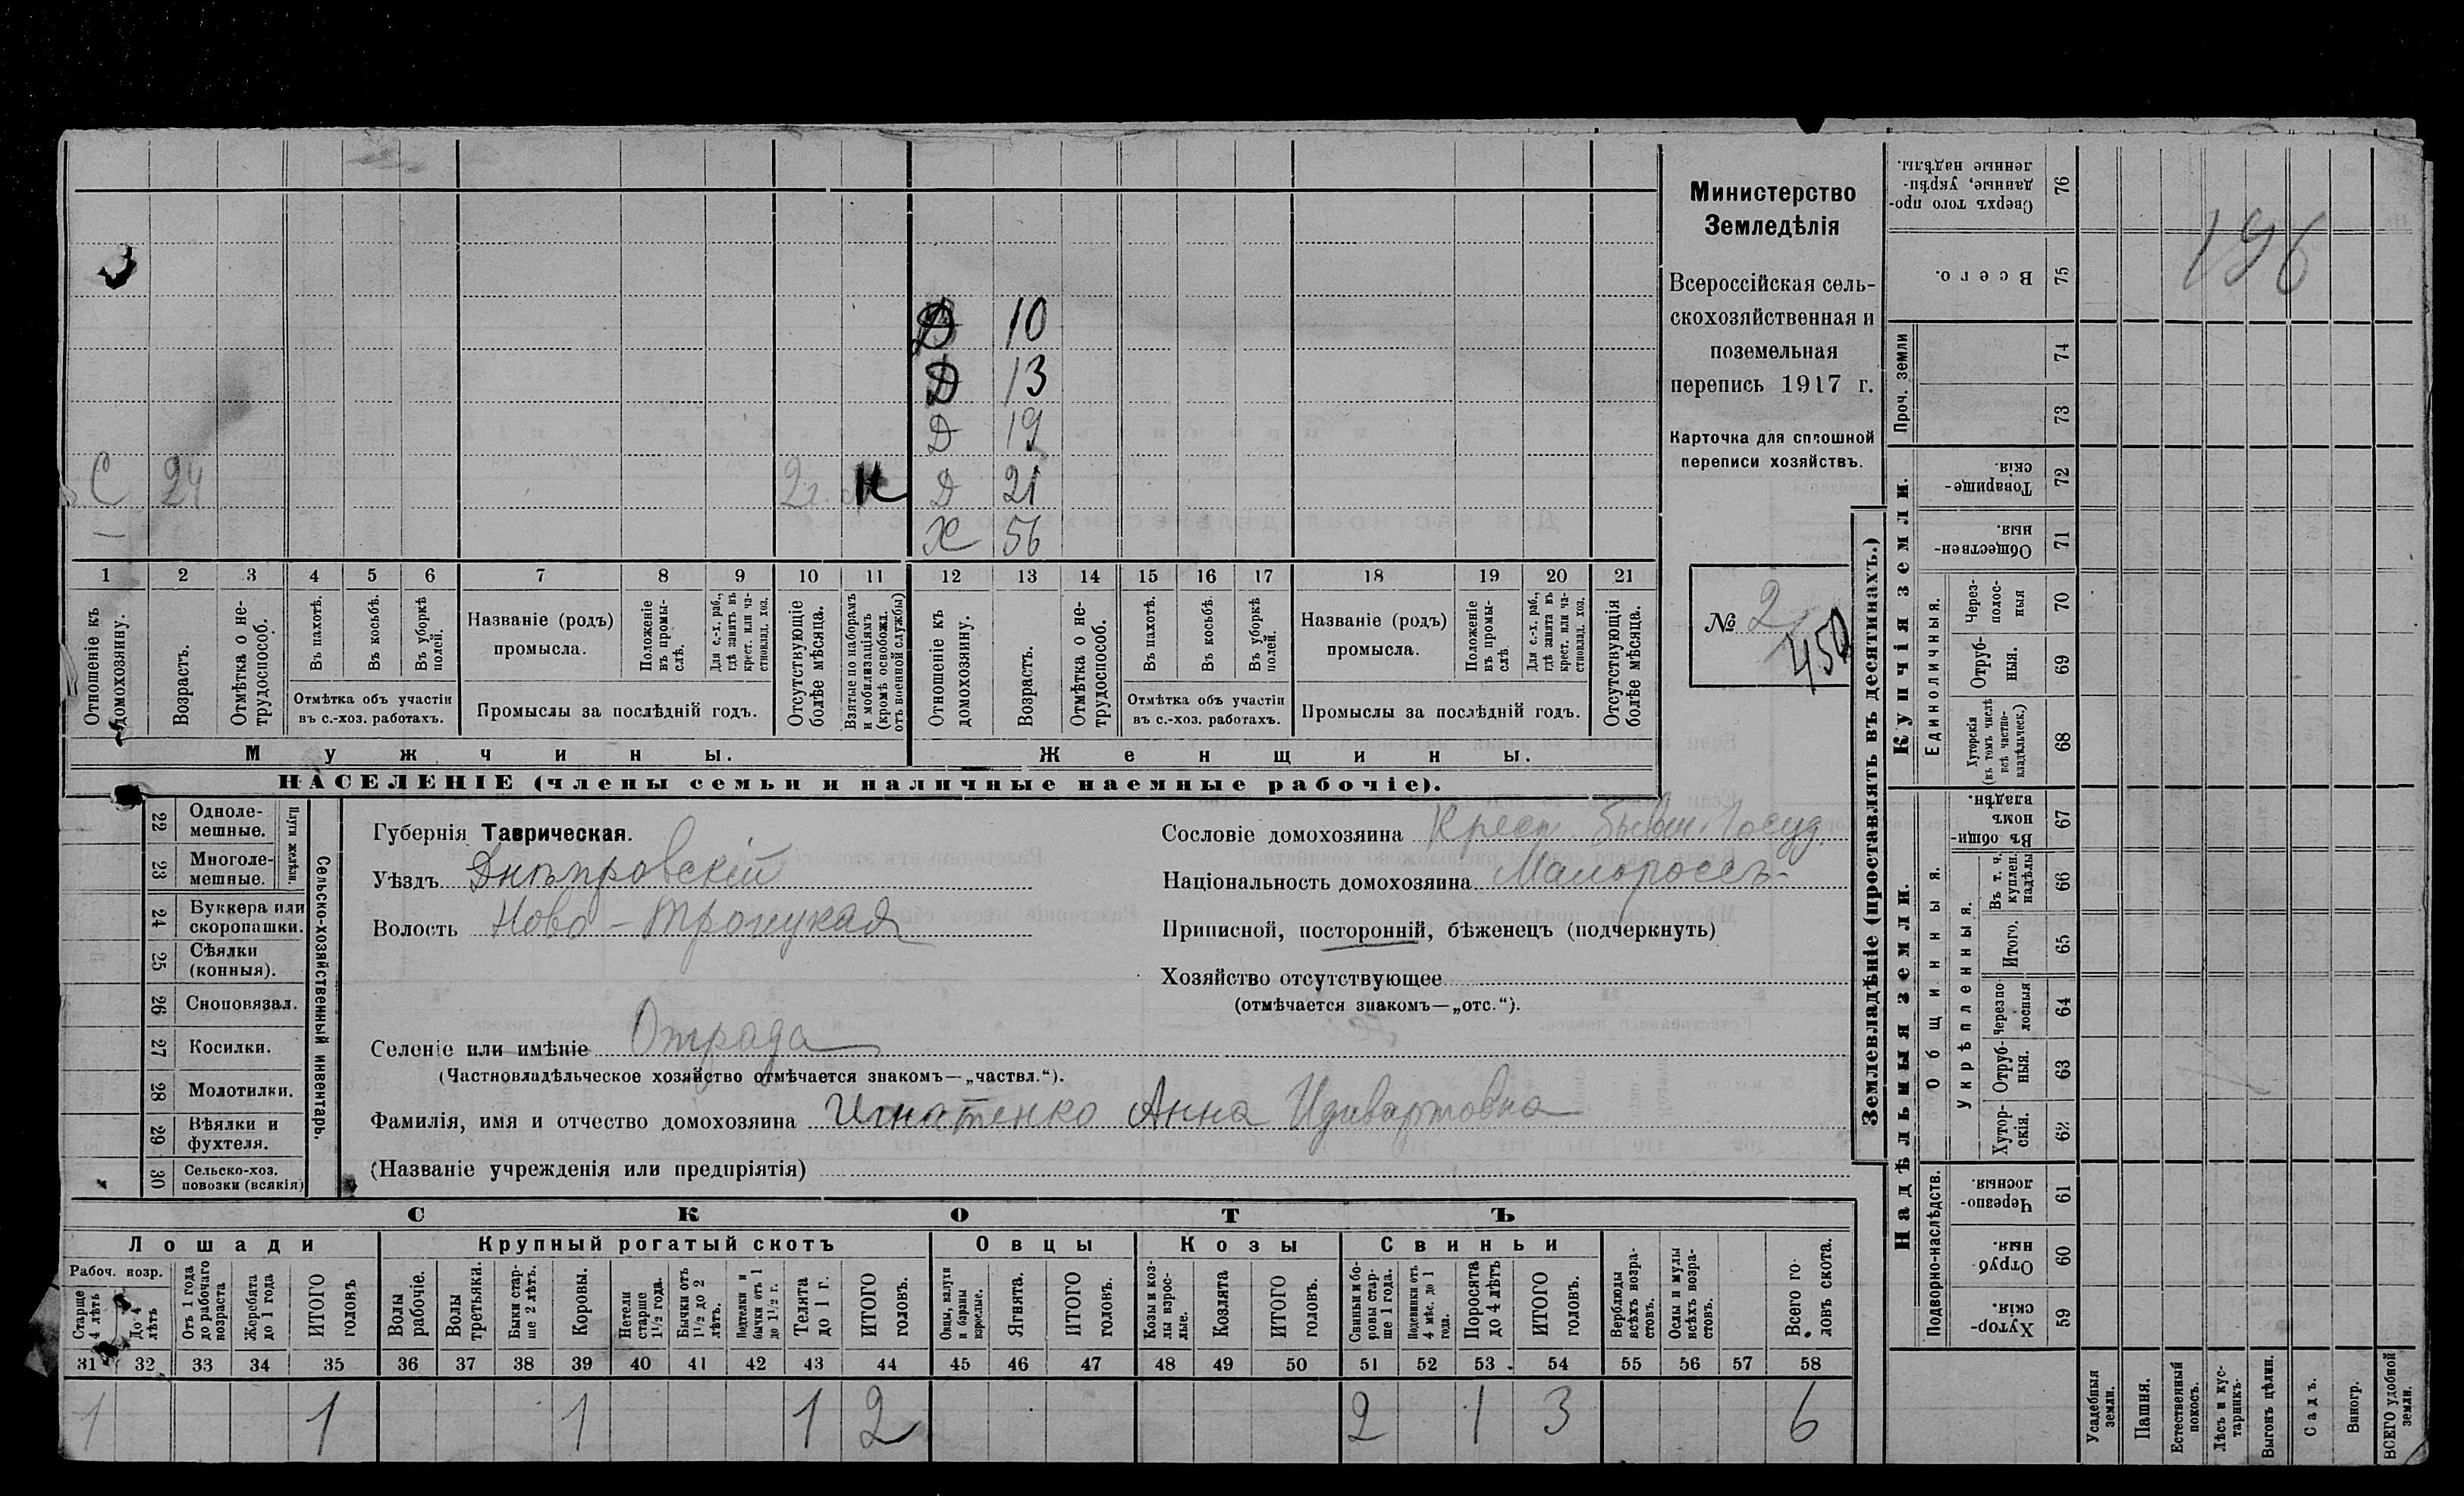 Министерство
Земледѣлія
Всероссійская сель-
скохозяйственная и
поземельная
перепись 1917 г.
Карточка для сплошной
переписи хозяйствъ.
№ 2
450
196
Д 10
Д 13
Д 19
С 24 2г. Н Д 21
Х 56
1 2 3 4 5 6 7 8 9 10 11 12 13 14 15 16 17 18 19 20 21
Отношеніе къ домохозяину.
Возрастъ.
Отмѣтка о не-трудоспособ.
Въ пахотѣ.
Въ косьбѣ.
Въ уборкѣ полей.
Отмѣтка объ участіи
въ с.-хоз. работахъ.
Названіе (родъ)
промысла.
Положеніе въ промы-слѣ.
Для с.-х. раб., гдѣ занятъ въ крест. или ча-стновлад. хоз.
Промыслы за послѣдній годъ.
Отсутствующіе болѣе мѣсяца.
Взятые по наборамъ и мобилизаціямъ (кромѣ освобожд. отъ военной службы)
Отношеніе къ домохозяину.
Возрастъ.
Отмѣтка о не-трудоспособ.
Въ пахотѣ.
Въ косьбѣ.
Въ уборкѣ полей.
Отмѣтка объ участіи
въ с.-хоз. работахъ.
Названіе (родъ)
промысла.
Положеніе въ промы-слѣ.
Для с.-х. раб., гдѣ занята въ крест. или ча-стновлад. хоз.
Промыслы за послѣдній годъ.
Отсутствующія болѣе мѣсяца.
Мужчины. Женщины.
НАСЕЛЕНІЕ (члены семьи и наличные наемные рабочіе).
22 Одноле-
мешные.
23 Многоле-
мешные.
Плуги желѣзн.
24 Буккера или
скоропашки.
25 Сѣялки
(конныя).
26 Сноповязал.
27 Косилки.
28 Молотилки.
29 Вѣялки и
фухтеля.
30 Сельско-хоз.
повозки (всякія)
Сельско-хозяйственный инвентарь.
Губернія Таврическая.
Уѣздъ Днѣпровскій
Волость Ново-Троицкая
Сословіе домохозяина Крест. бывш. Госуд.
Національность домохозяина Малороссъ
Приписной, посторонній, бѣженецъ (подчеркнуть)
Хозяйство отсутствующее
(отмѣчается знакомъ—„отс.“).
Селеніе или имѣніе Отрада
(Частновладѣльческое хозяйство отмѣчается знакомъ—„частвл.“).
Фамилія, имя и отчество домохозяина Игнатенко Анна
(Названіе учрежденія или предпріятія)
СКОТЪ
Лошади Крупный рогатый скотъ Овцы Козы Свиньи
Рабоч. возр.
Старше 4 лѣтъ
До 4 лѣтъ
Отъ 1 года до рабочаго возраста
Жеребята до 1 года
ИТОГО головъ
Волы рабочіе.
Волы третьяки.
Быки стар-ше 2 лѣтъ.
Коровы.
Нетели старше 1½ года.
Бычки отъ 1½ до 2 лѣтъ.
Подтелки и бычки отъ 1 до 1½ г.
Телята до 1 г.
ИТОГО головъ.
Овцы, валухи и бараны взрослые.
Ягнята.
ИТОГО головъ.
Козы и коз-лы взрос-лые.
Козлята
ИТОГО головъ.
Свиньи и бо-ровы стар-ше 1 года.
Подсвинки отъ 4 мѣс. до 1 года.
Поросята до 4 лѣтъ
ИТОГО головъ.
Верблюды всѣхъ возра-стовъ.
Ослы и мулы всѣхъ возра-стовъ.
Всего го-ловъ скота.
31 32 33 34 35 36 37 38 39 40 41 42 43 44 45 46 47 48 49 50 51 52 53 54 55 56 57 58
1 1 1 1 2 2 1 3 6
Землевладѣніе (проставлять въ десятинахъ.)
Купчія земли.
Надѣльныя земли.
Сверхъ того про-данные, укрѣп-ленные надѣлы. 76
Всего. 75
Проч. земли 74 73
Товарище-скія. 72
Обществен-ныя. 71
Единоличныя.
Через-полос-ныя 70
Отруб-ныя. 69
Хуторскія (въ томъ числѣ всѣ частно-владѣльческ.) 68
Общинныя.
Въ общи-номъ владѣн. 67
Укрѣпленныя.
Въ т. ч. куплен. надѣлы 66
Итого. 65
Черезпо-лосныя 64
Отруб-ныя. 63
Хутор-скія. 62
Подворно-наслѣдств.
Черезпо-лосныя. 61
Отруб-ныя. 60
Хутор-скія. 59
Усадебныя земли.
Пашня.
Естественный покосъ.
Лѣсъ и кус-тарникъ
Выгонъ цѣлин.
Садъ.
Виногр.
ВСЕГО удобной земли.